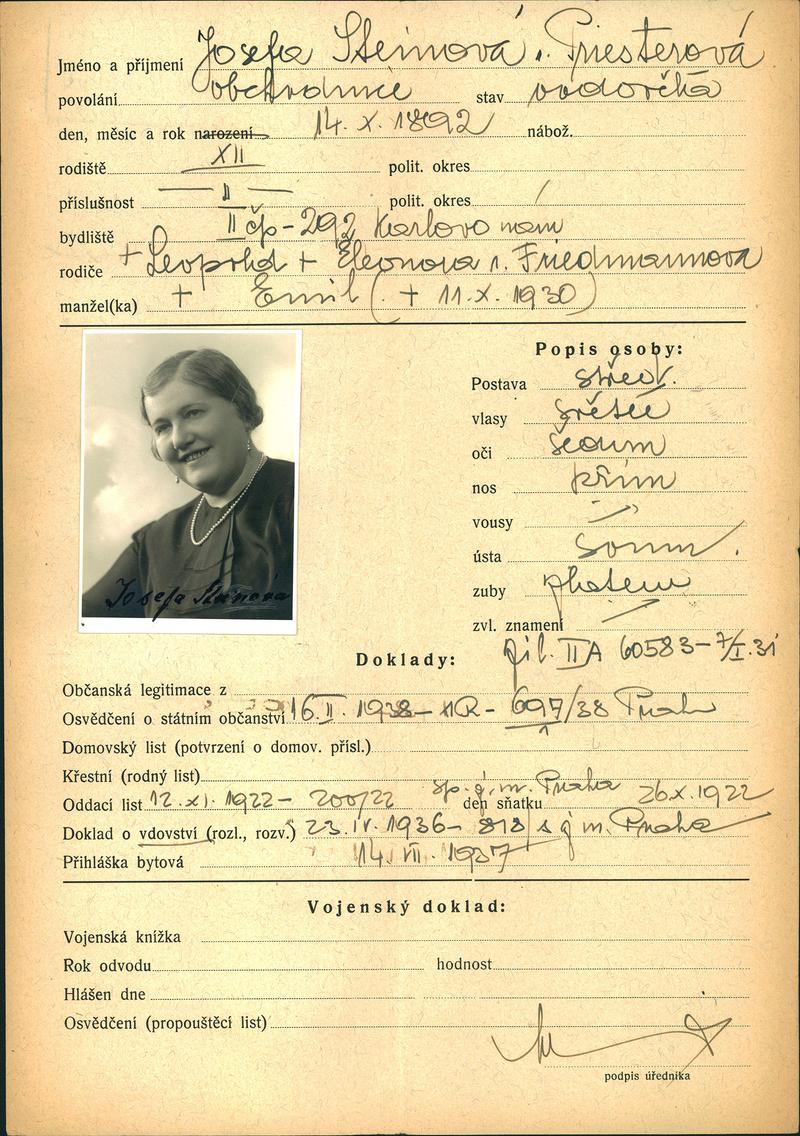 Jméno a příjmení Josefa Steinová r. Priesterová
povolání obchodnice stav vdova
den, měsíc a rok narození 14. X. 1892 nábož.
rodiště XII polit. okres
příslušnost II polit. okres
bydliště II čp - 292 Karlovo nám
rodiče + Leopold + Eleonora r. Friedmannová
manžel(ka) + Emil ( + 11. X. 1930)
Popis osoby:
Postava střed.
vlasy
oči
nos přím
vousy —
ústa
zuby
zvl. znamení —
Josefa Steinová
Doklady:
IIA 60583 - 7/I. 31
Občanská legitimace z
Osvědčení o státním občanství 16. II. 1938 - 697/38 Praha
Domovský list (potvrzení o domov. přísl.)
Křestní (rodný list)
Oddací list 12. XI. 1922 - 200/22 Praha den sňatku 26. X. 1922
Doklad o vdovství (rozl., rozv.) 23. IV. 1936 - Praha
Přihláška bytová 14. VII. 1937
Vojenský doklad:
Vojenská knížka
Rok odvodu hodnost
Hlášen dne
Osvědčení (propouštěcí list)
podpis úředníka